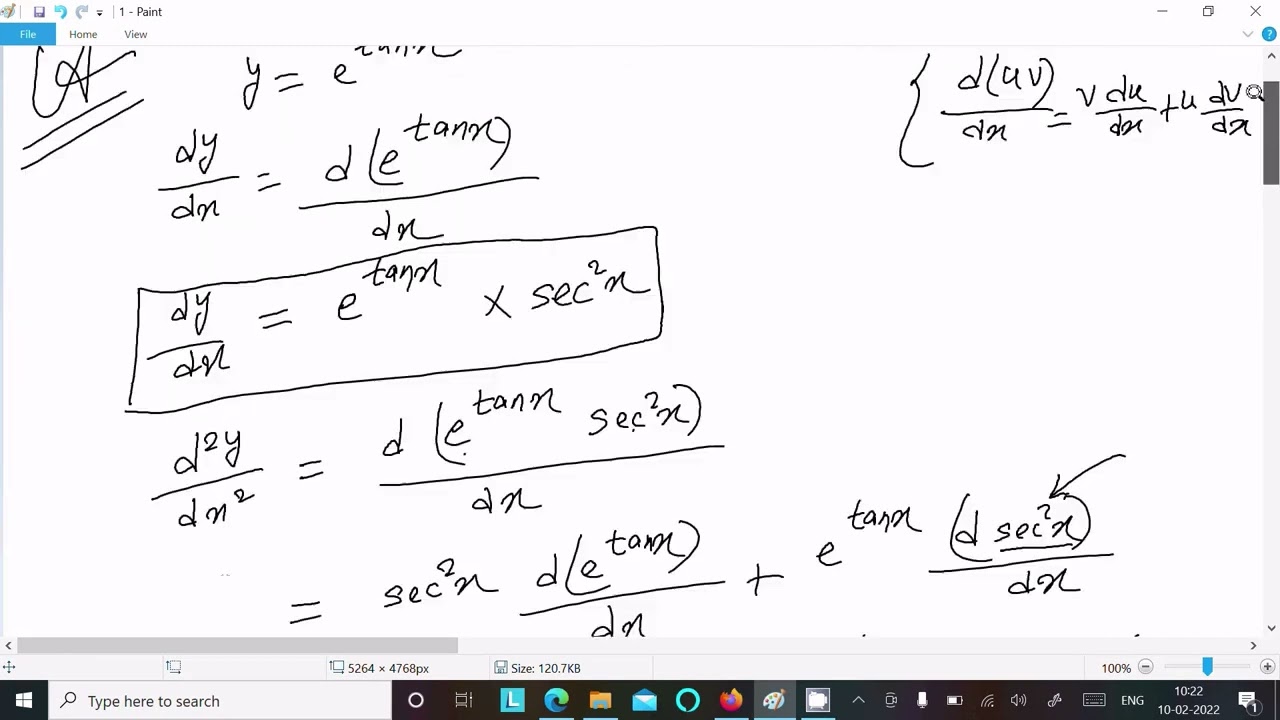 1 - Paint
File Home View
A
y = e^tanx
d(uv)/dx = v du/dx + u dv/dx
dy/dx = d(e^tanx)/dx
dy/dx = e^tanx × sec²x
d²y/dx² = d(e^tanx sec²x)/dx
= sec²x d(e^tanx)/dx + e^tanx (d sec²x)/dx
5264 × 4768px Size: 120.7KB 100%
Type here to search
ENG
10:22
10-02-2022